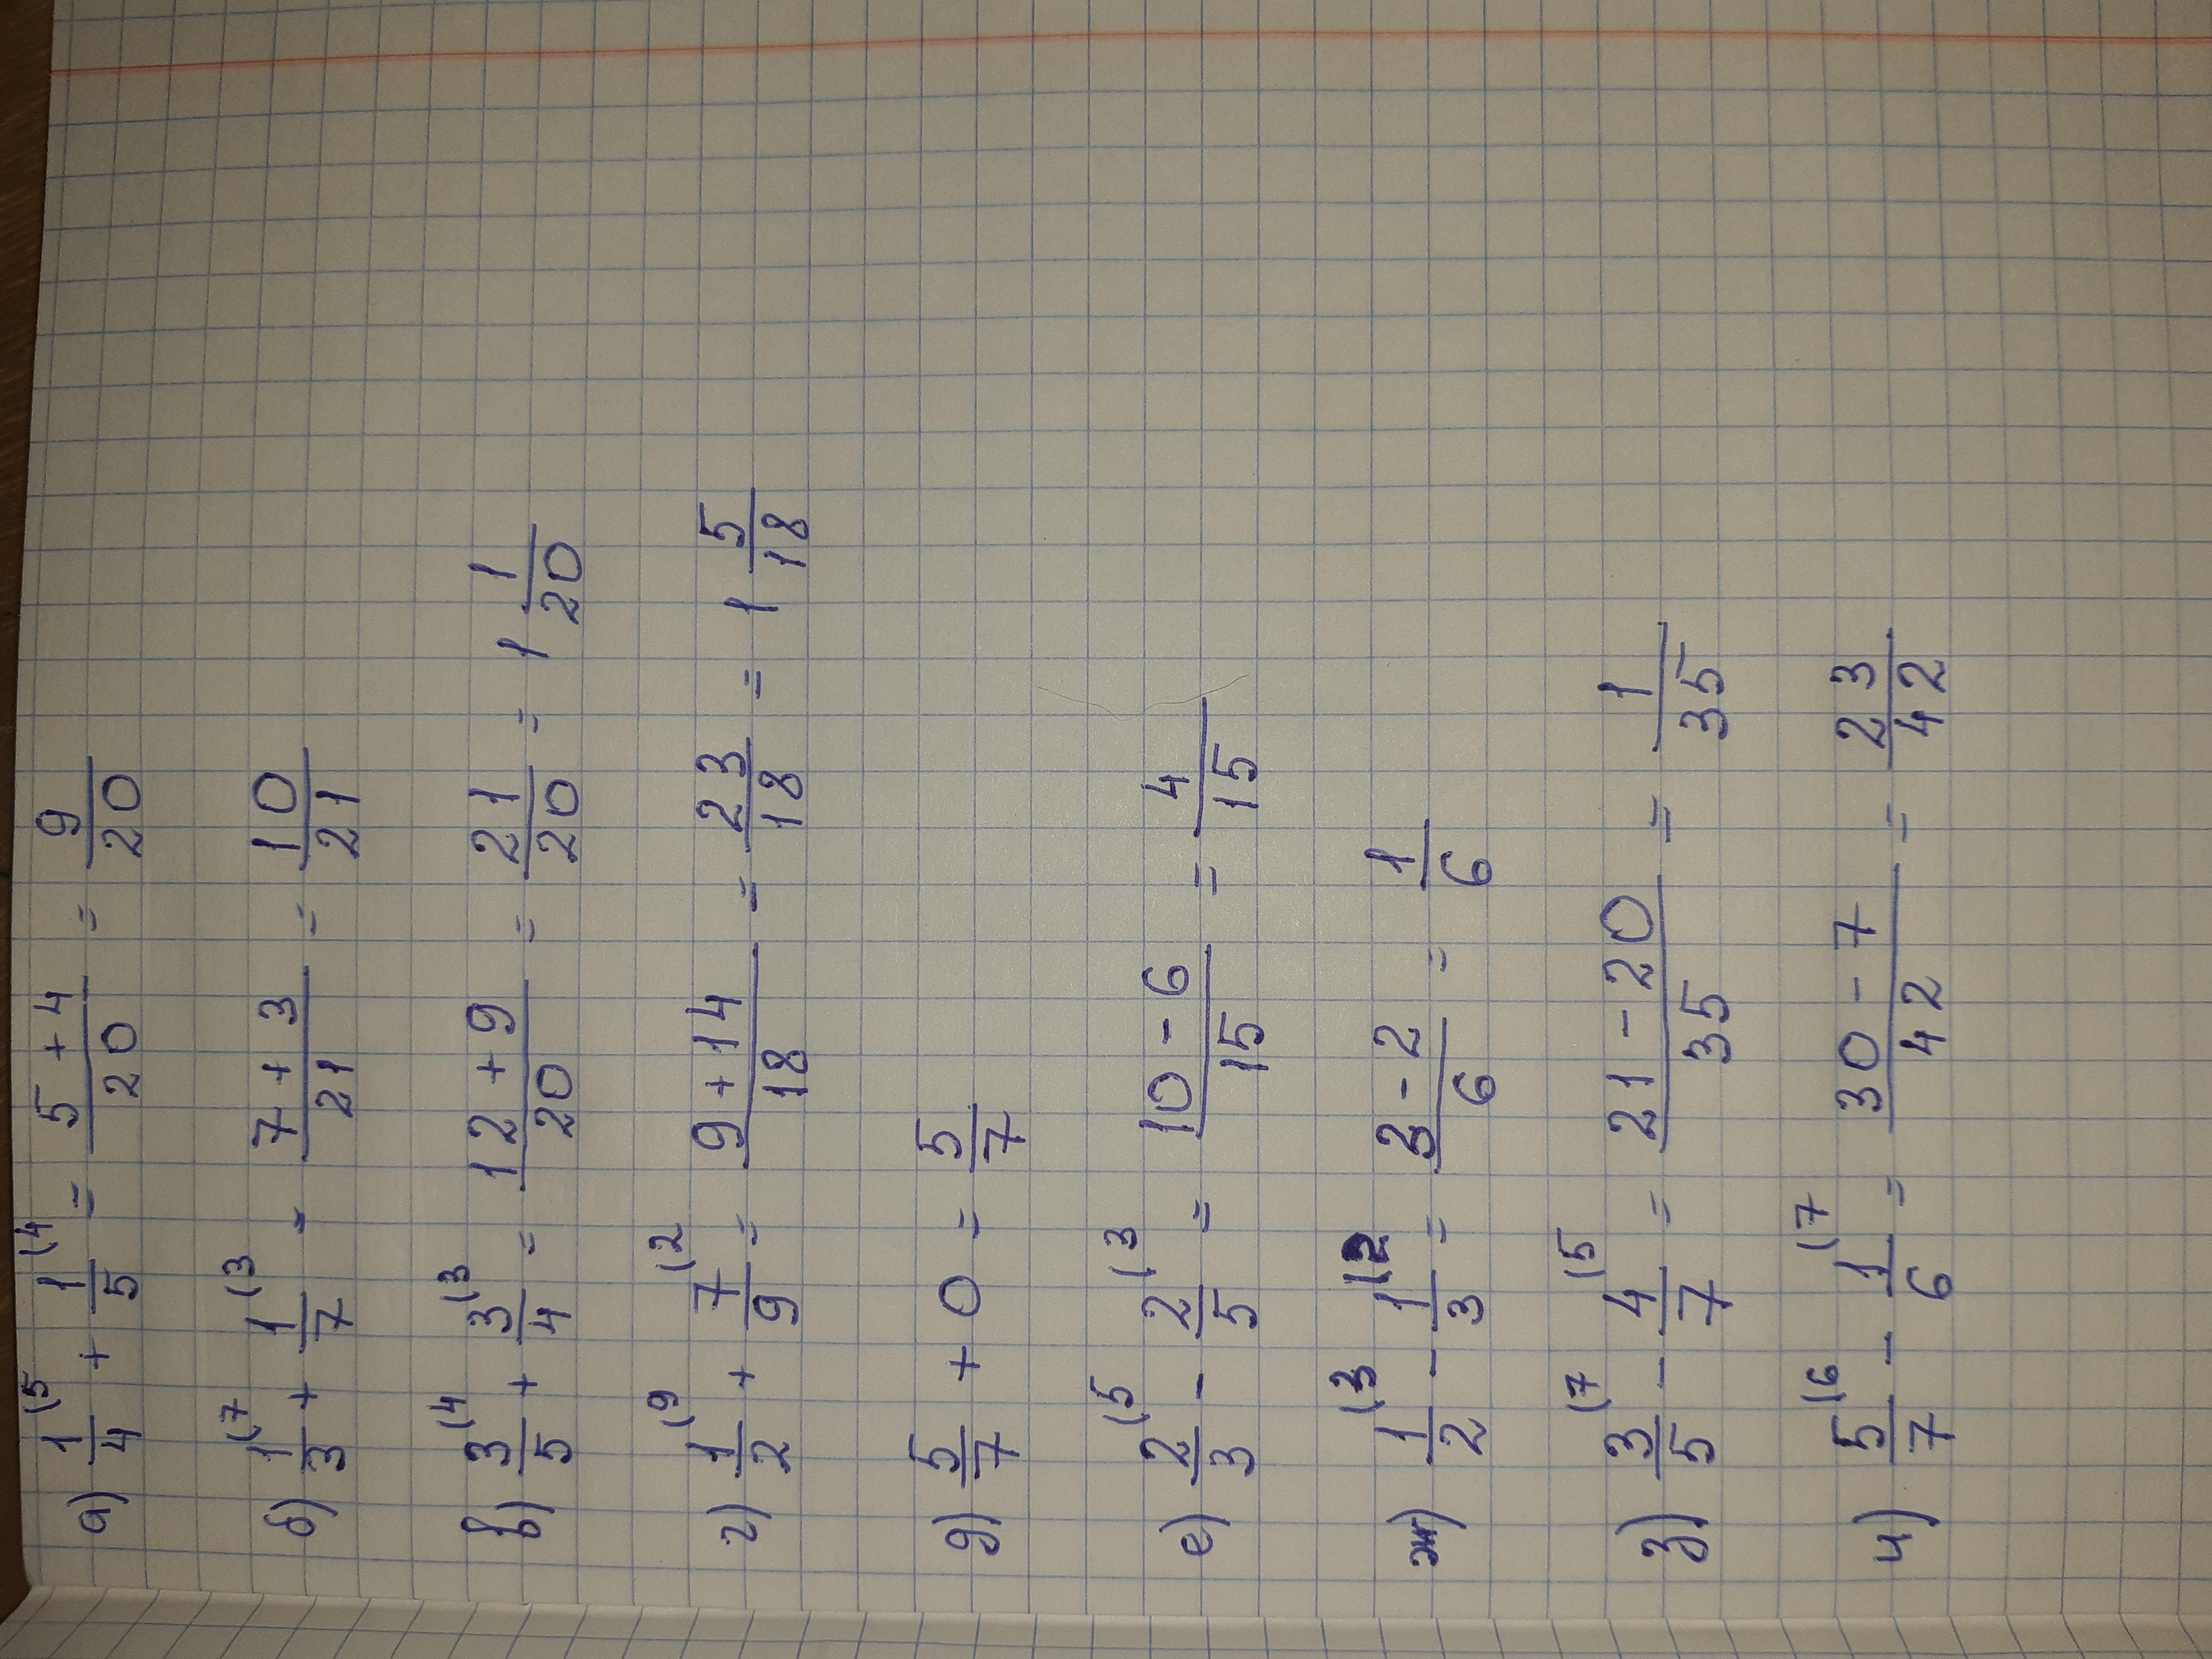 а) 1/4 (5 + 1/5 (4 = (5 + 4)/20 = 9/20
б) 1/3 (7 + 1/7 (3 = (7 + 3)/21 = 10/21
в) 3/5 (4 + 3/4 (3 = (12 + 9)/20 = 21/20 = 1 1/20
г) 1/2 (9 + 7/9 (2 = (9 + 14)/18 = 23/18 = 1 5/18
д) 5/7 + 0 = 5/7
е) 2/3 (5 - 2/5 (3 = (10 - 6)/15 = 4/15
ж) 1/2 (3 - 1/3 (2 = (3 - 2)/6 = 1/6
з) 3/5 (7 - 4/7 (5 = (21 - 20)/35 = 1/35
и) 5/7 (6 - 1/6 (7 = (30 - 7)/42 = 23/42